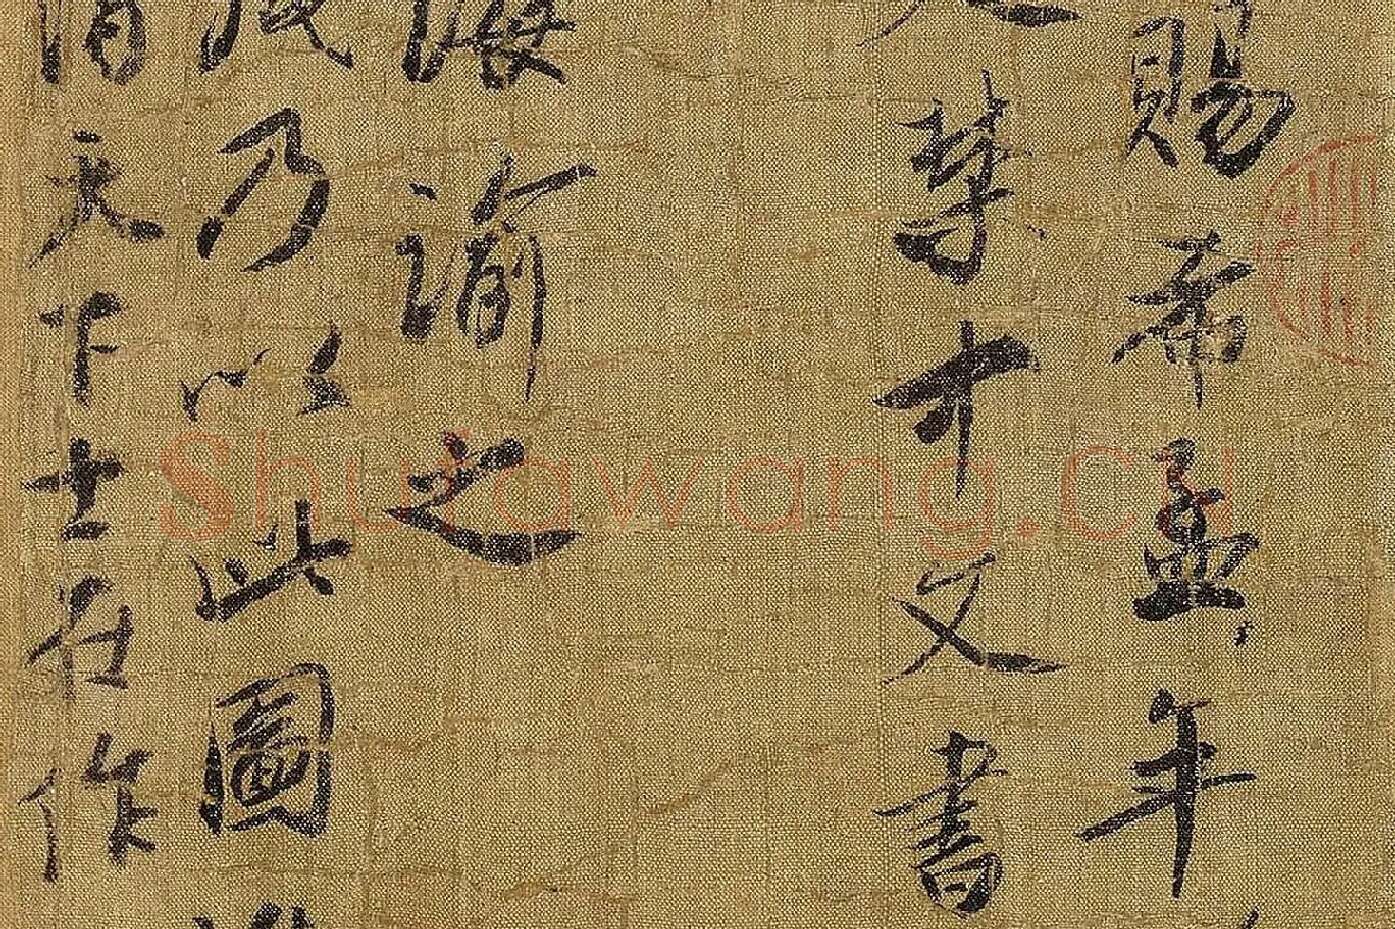 賜希孟年
禁中文書
誨諭之
歲乃以此圖
謂天下士在作
Shufawang.cn